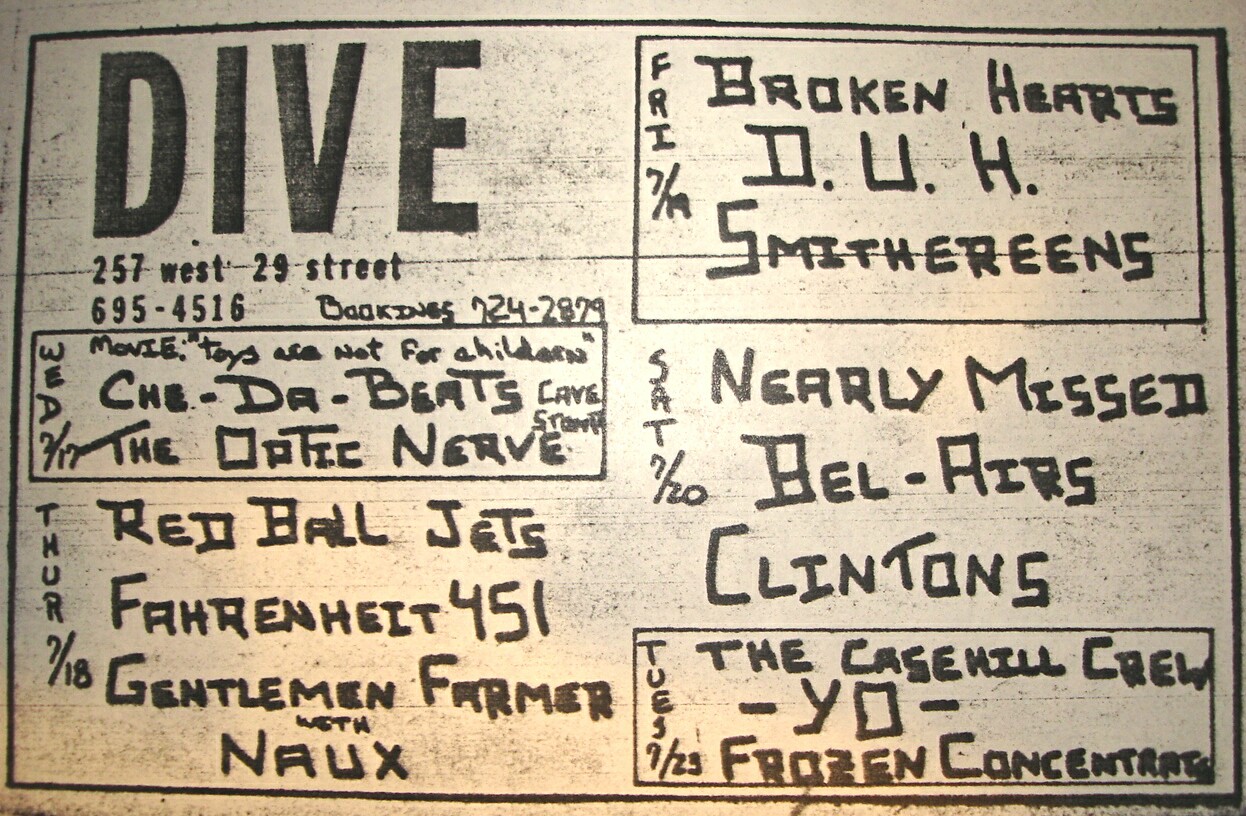 DIVE
257 west 29 street
695-4516 BOOKINGS 724-2879
WED 7/17
MOVIE: "toys are not for children"
CHE-DA-BEATS CAVE STOMP
THE OPTIC NERVE
THUR 7/18
RED BALL JETS
FAHRENHEIT 451
GENTLEMEN FARMER
WITH
NAUX
FRI 7/19
BROKEN HEARTS
D.U.H.
SMITHEREENS
SAT 7/20
NEARLY MISSED
BEL-AIRS
CLINTONS
TUES 7/23
THE CASEHILL CREW
-YO-
FROZEN CONCENTRATE